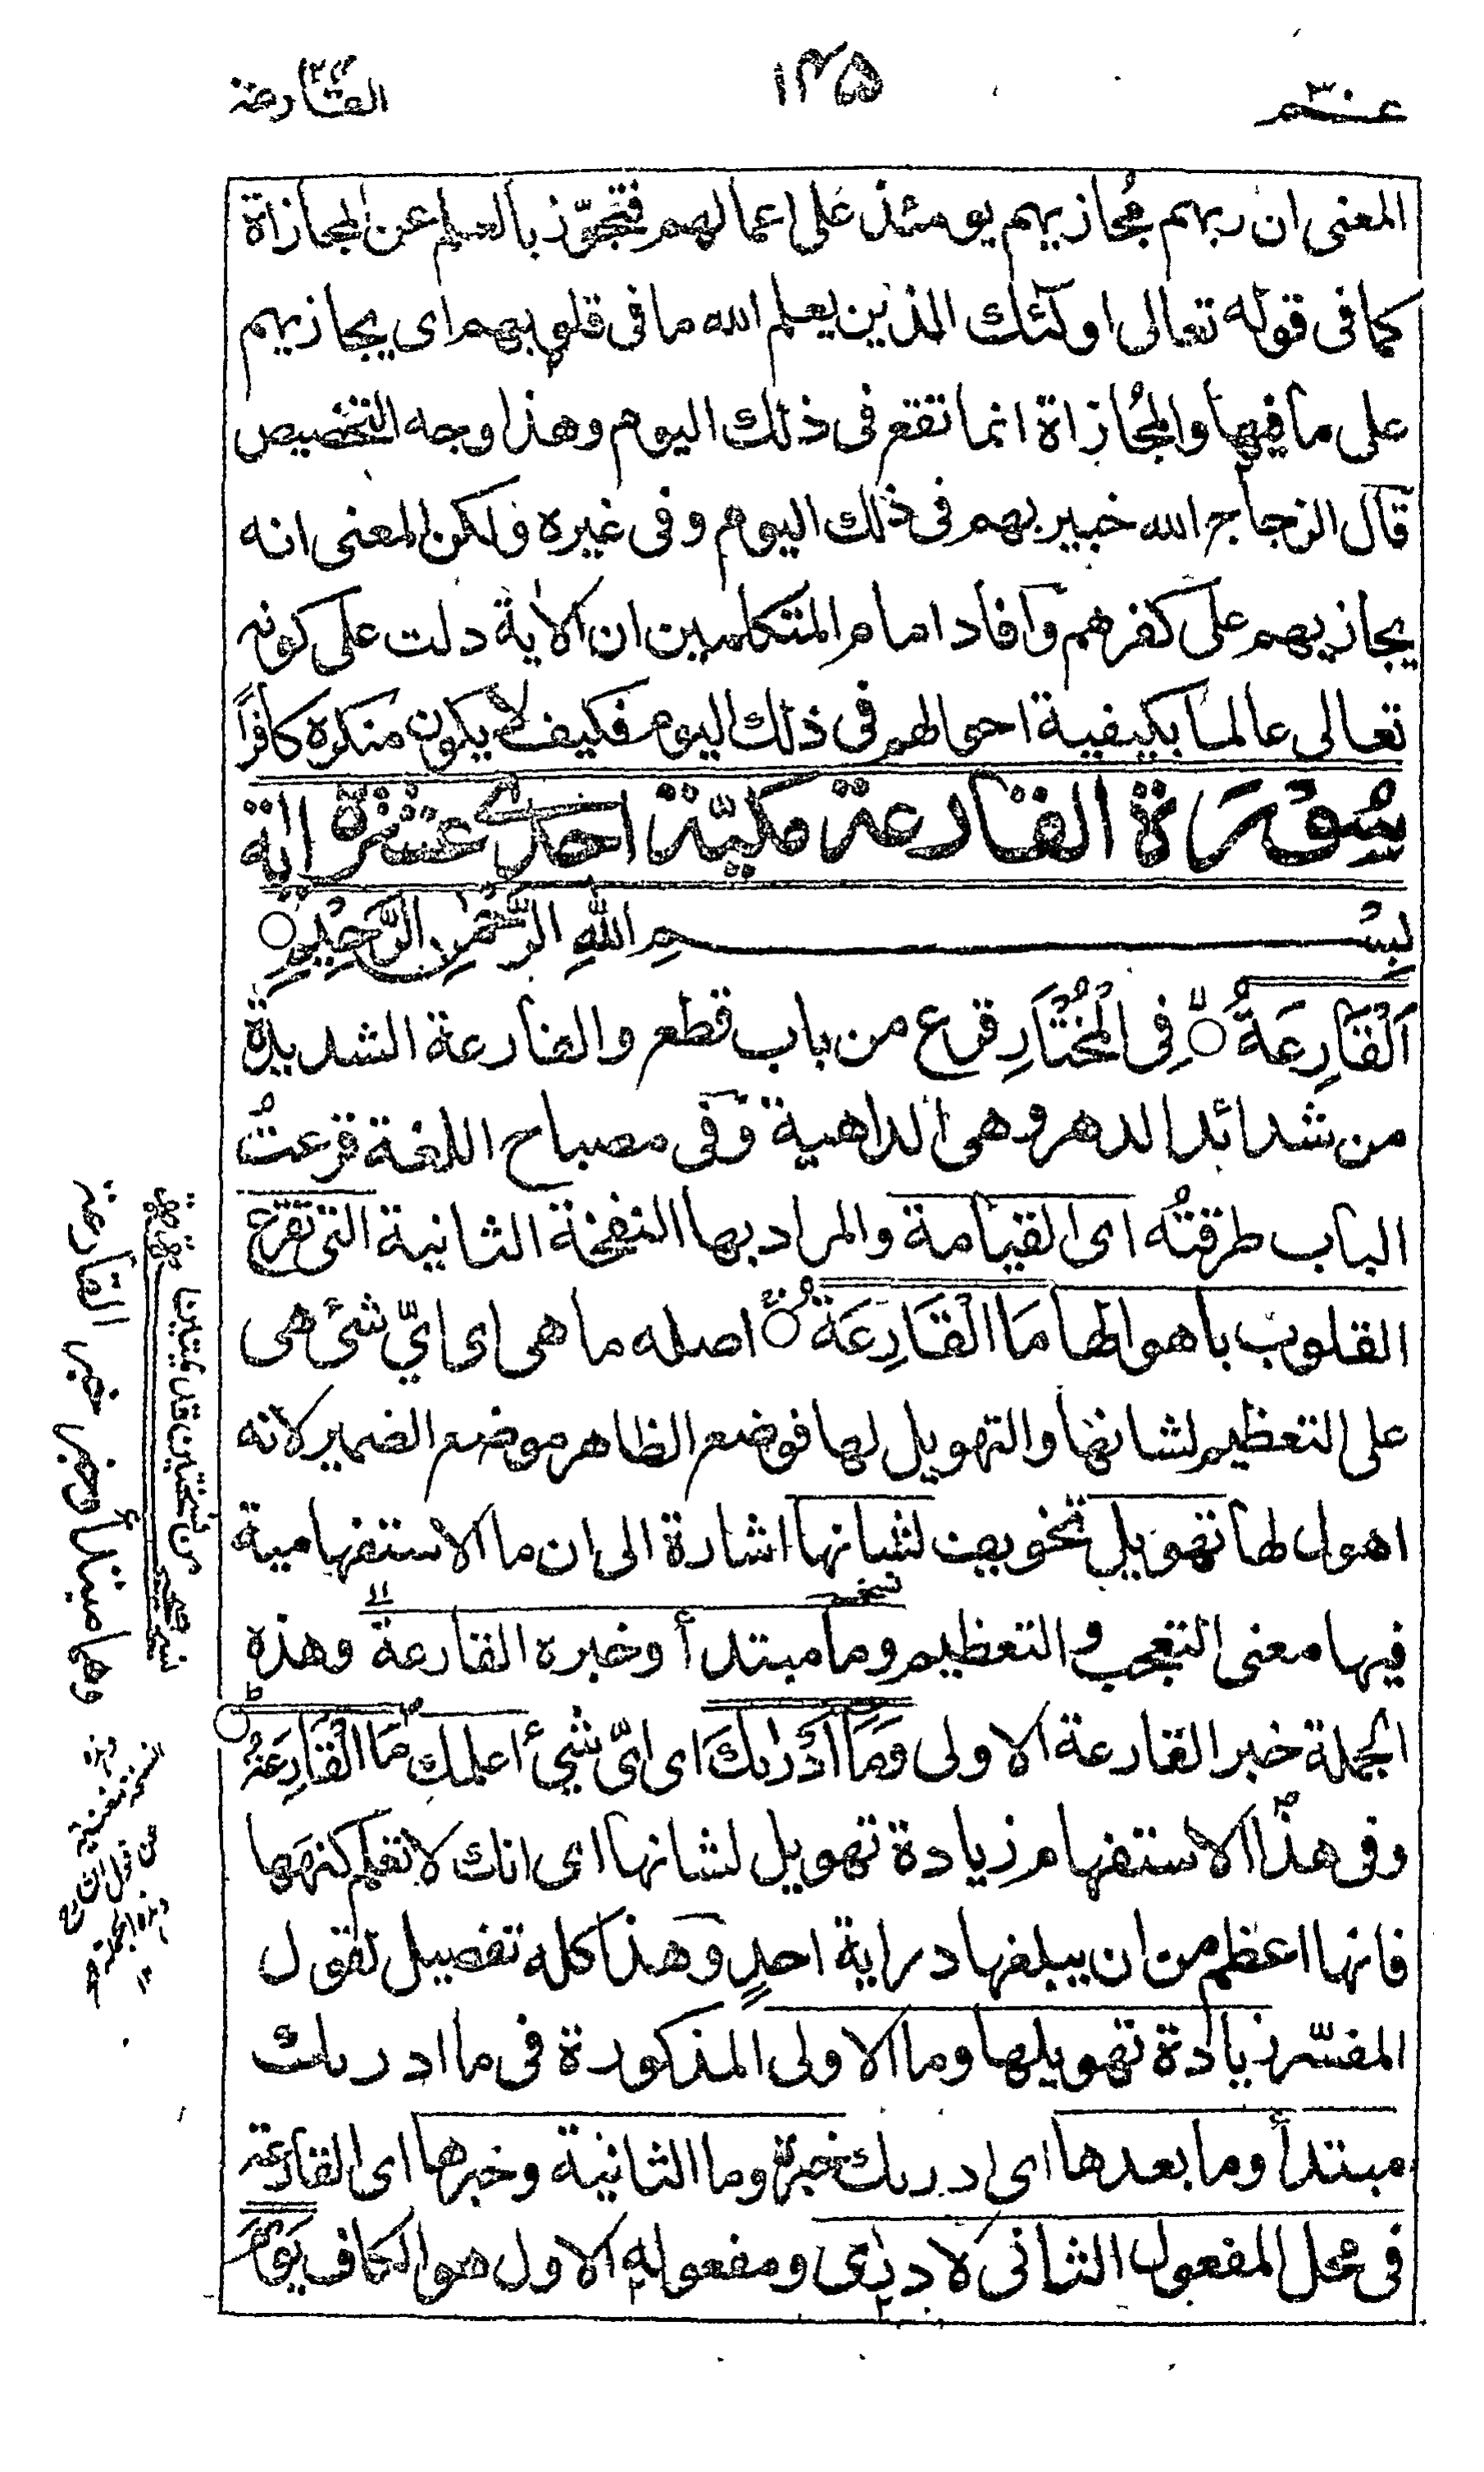 عـــم ٣٠
١٤٥
القارعة
المعنى ان ربهم مُجازيهم يومئذ على اعمالهم فتجوّز بالعلم عن المجازاة
كما فى قوله تعالى اولئك الذين يعلم الله ما فى قلوبهم اى يجازيهم
على ما فيها والمُجازاة انما تقع فى ذلك اليوم وهذا وجه التخصيص
قال الزجاج الله خبير بهم فى ذلك اليوم وفى غيره ولكن المعنى انه
يجازيهم على كفرهم وافاد امام المتكلمين ان الاية دلت على كونه
تعالى عالما بكيفية احوالهم فى ذلك اليوم فكيف لا يكون منكره كافرًا
سُوْرَةُ القارعة مكيّة احدى عشرة اية
بِسْــــــمِ اللهِ الرَّحْمٰنِ الرَّحِيْمِ
اَلْقَارِعَةُ فِى الْمُخْتَارِ قرع من باب قطع والقارعة الشديدة
من شدائد الدهر وهى الداهية وفى مصباح اللغة قرعتُ
الباب طرقتُه اى القيامة والمراد بها النفخة الثانية التى تقرع
القلوب باهوالها مَا الْقَارِعَةُ اصله ما هى اى ايّ شئ هى
على التعظيم لشانها والتهويل لها فوضع الظاهر موضع الضمير لانه
اهول لها تهويل تخويف لشانها اشارة الى ان ما الاستفهامية
فيها معنى التعجب والتعظيم وما مبتدأ وخبره القارعة وهذه
الجملة خبر القارعة الاولى وَمَا اَدْرٰىكَ اى ايّ شيئ اعلمك مَا الْقَارِعَةُ
وفى هذا الاستفهام زيادة تهويل لشانها اى انك لا تعلم كنهها
فانها اعظم من ان يبلغها دراية احدٍ وهذا كله تفصيل لقول
المفسّر زيادة تهويلها وما الاولى المذكورة فى ما ادرىك
مبتدأ وما بعدها اى ادرىك خبره وما الثانية وخبرها اى القارعة
فى محل المفعول الثانى لادرى ومفعوله الاول هو الكاف يَوْمَ
وهما مبتدأ وخبر خبر القارعة